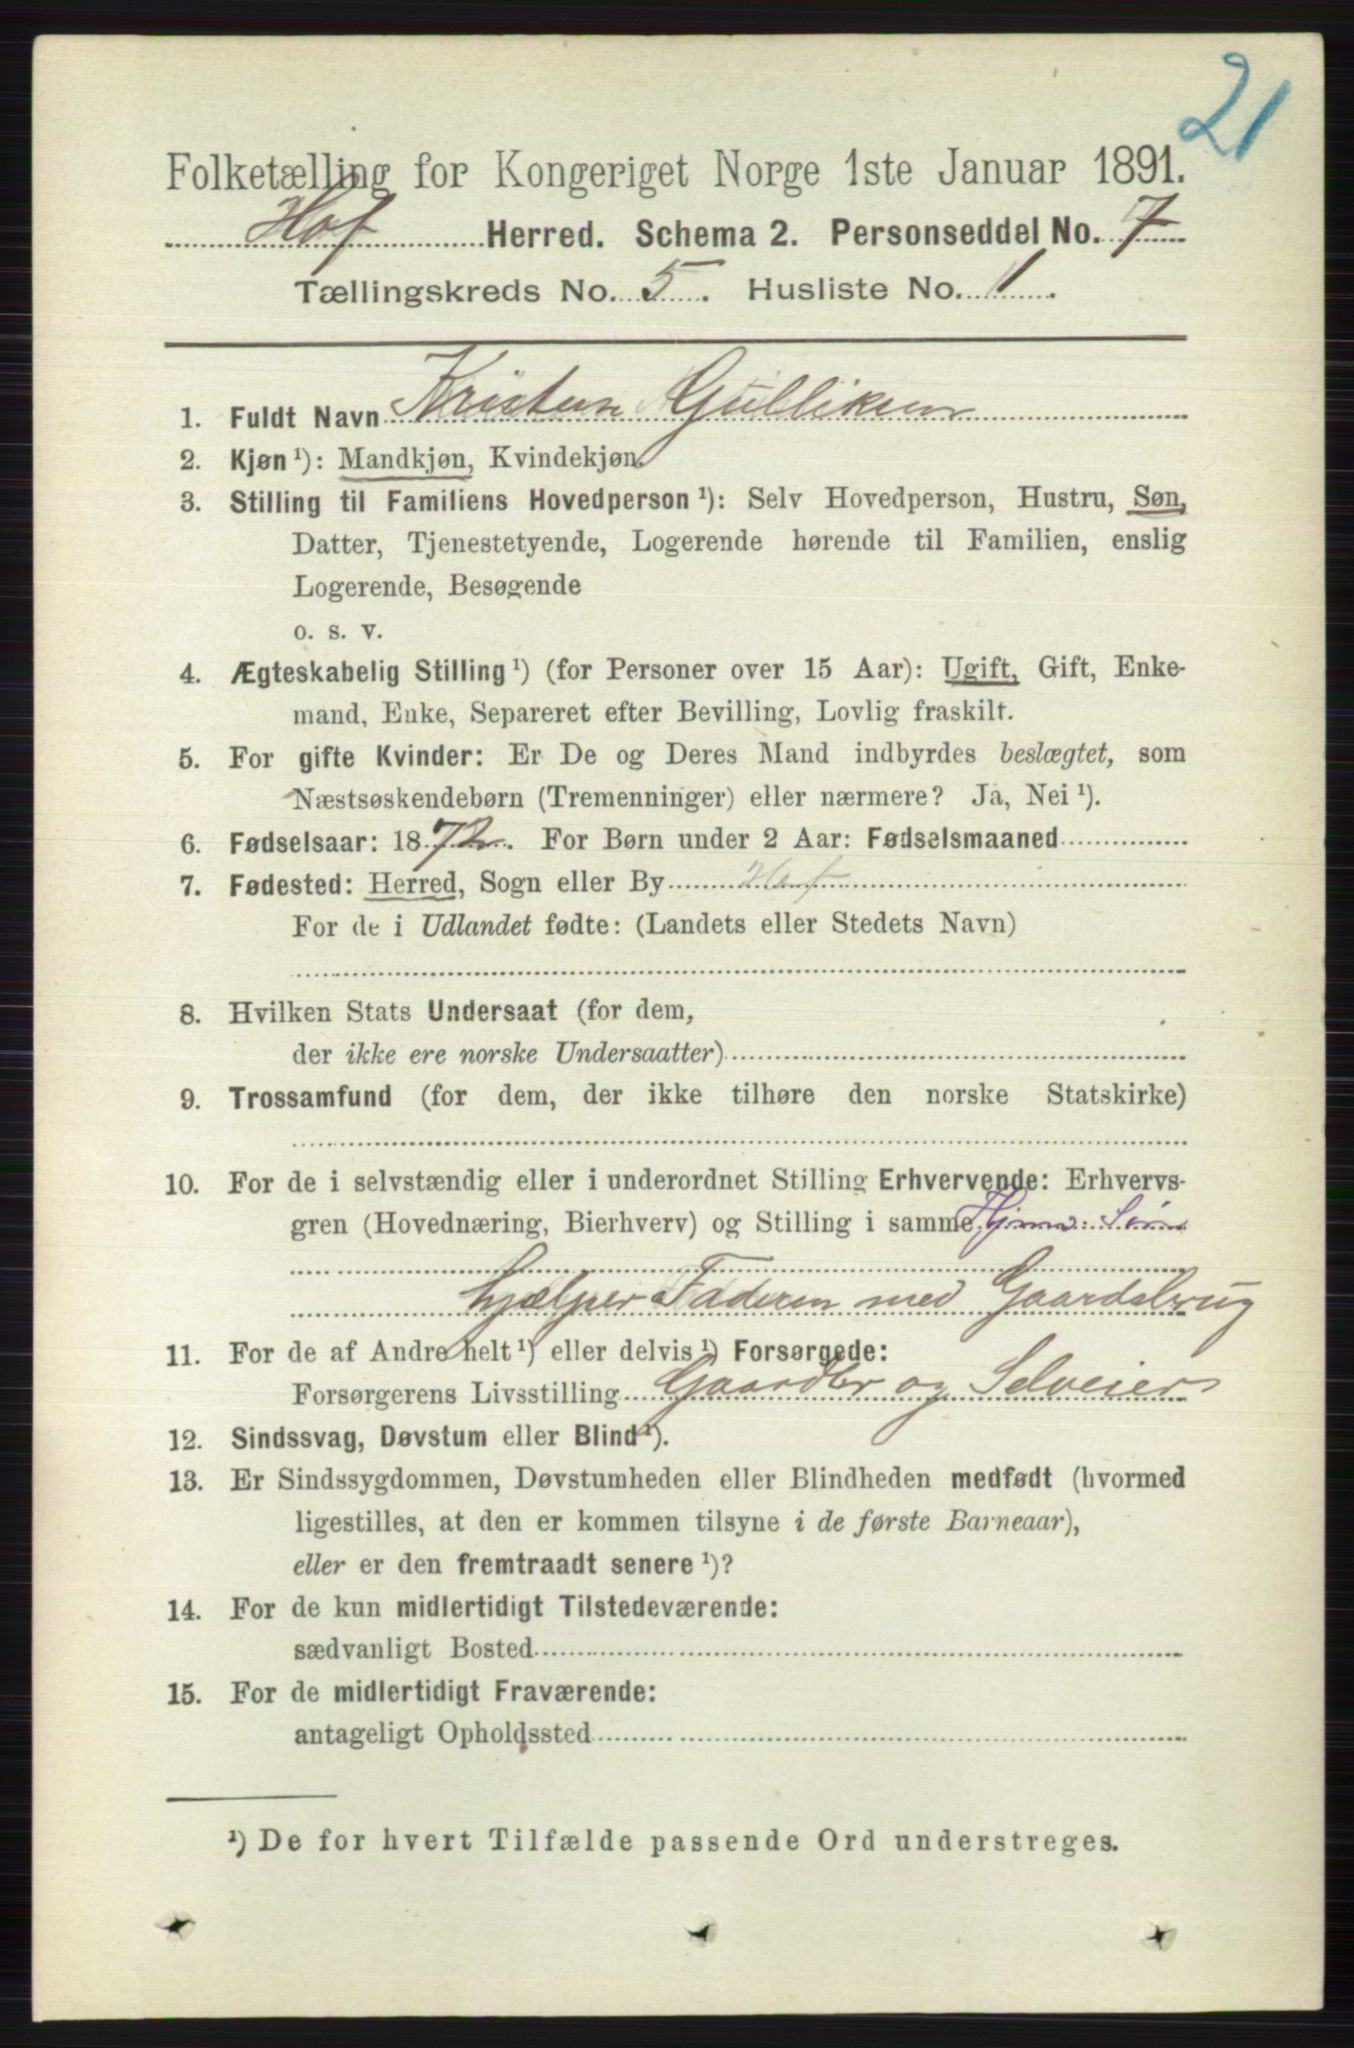 21
Folketælling for Kongeriget Norge 1ste Januar 1891.
Hof Herred. Schema 2. Personseddel No. 7
Tællingskreds No. 5. Husliste No. 1.
1. Fuldt Navn Kristen Gulliksen
2. Kjøn ¹): Mandkjøn, Kvindekjøn.
3. Stilling til Familiens Hovedperson ¹): Selv Hovedperson, Hustru, Søn,
Datter, Tjenestetyende, Logerende hørende til Familien, enslig
Logerende, Besøgende
o. s. v.
4. Ægteskabelig Stilling ¹) (for Personer over 15 Aar): Ugift, Gift, Enke-
mand, Enke, Separeret efter Bevilling, Lovlig fraskilt.
5. For gifte Kvinder: Er De og Deres Mand indbyrdes beslægtet, som
Næstsøskendebørn (Tremenninger) eller nærmere? Ja, Nei ¹).
6. Fødselsaar: 1872. For Børn under 2 Aar: Fødselsmaaned
7. Fødested: Herred, Sogn eller By Hof
For de i Udlandet fødte: (Landets eller Stedets Navn)
8. Hvilken Stats Undersaat (for dem,
der ikke ere norske Undersaatter)
9. Trossamfund (for dem, der ikke tilhøre den norske Statskirke)
10. For de i selvstændig eller i underordnet Stilling Erhvervende: Erhvervs-
gren (Hovednæring, Bierhverv) og Stilling i samme
hjælper Faderen med Gaardsbrug
11. For de af Andre helt ¹) eller delvis ¹) Forsørgede:
Forsørgerens Livsstilling Gaardbr og Selveier
12. Sindssvag, Døvstum eller Blind ¹).
13. Er Sindssygdommen, Døvstumheden eller Blindheden medfødt (hvormed
ligestilles, at den er kommen tilsyne i de første Barneaar),
eller er den fremtraadt senere ¹)?
14. For de kun midlertidigt Tilstedeværende:
sædvanligt Bosted
15. For de midlertidigt Fraværende:
antageligt Opholdssted
¹) De for hvert Tilfælde passende Ord understreges.